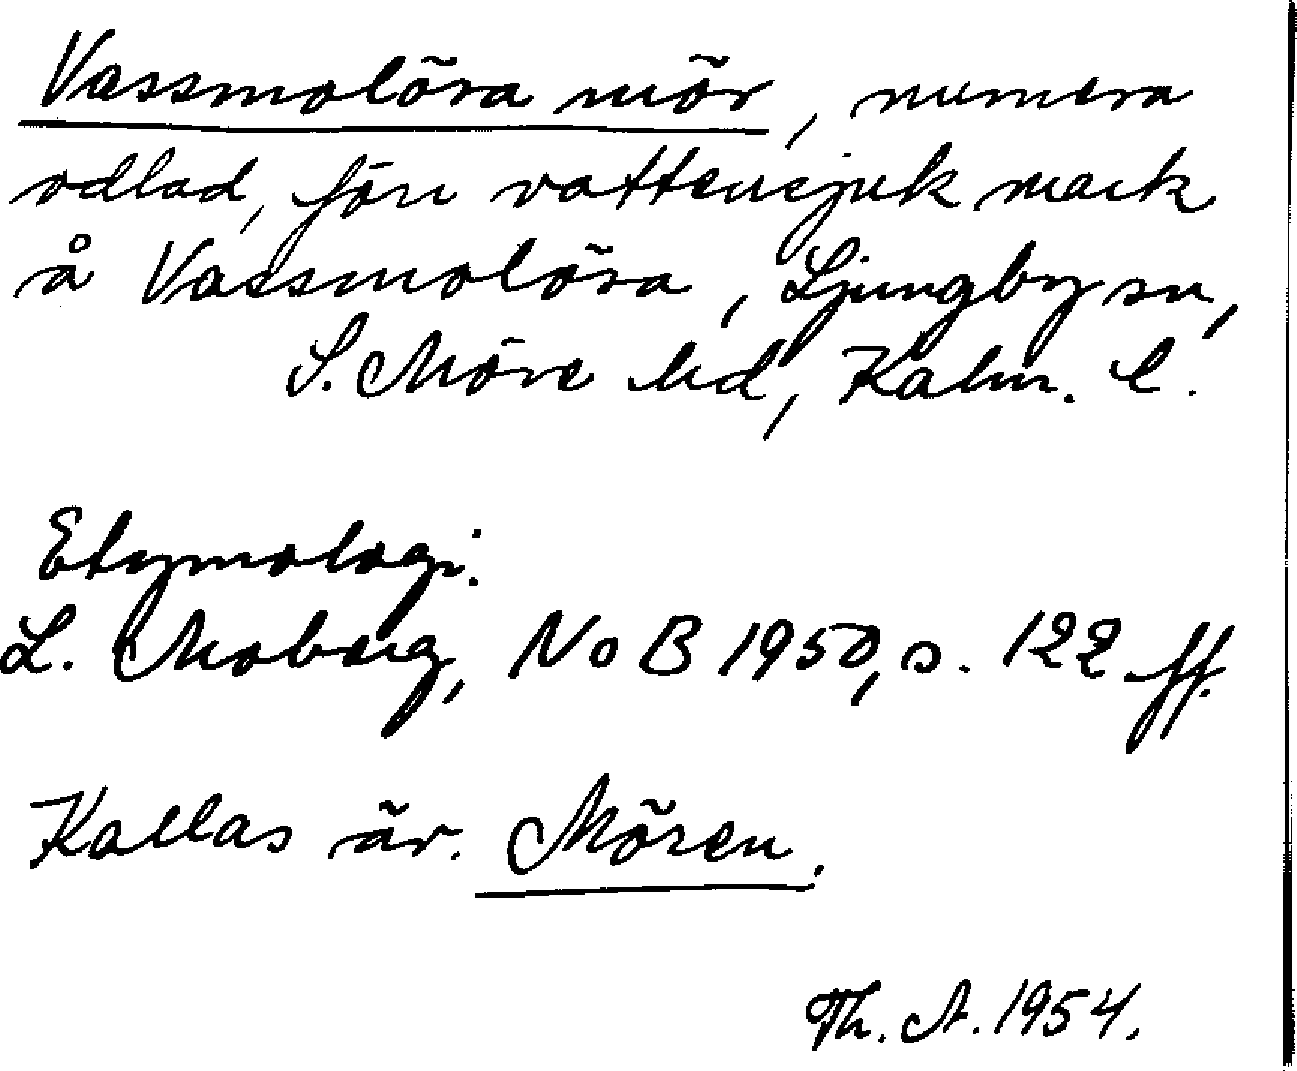 Vassmolösa mör, numera
odlad, förr vattensjuk mark
å Vassmolösa, Ljungby sn,
S. Möre hd, Kalm. l.
Etymologi:
L. Moberg, NoB 1950, s. 122 ff.
Kallas äv. Mören.
Th. A. 1954.